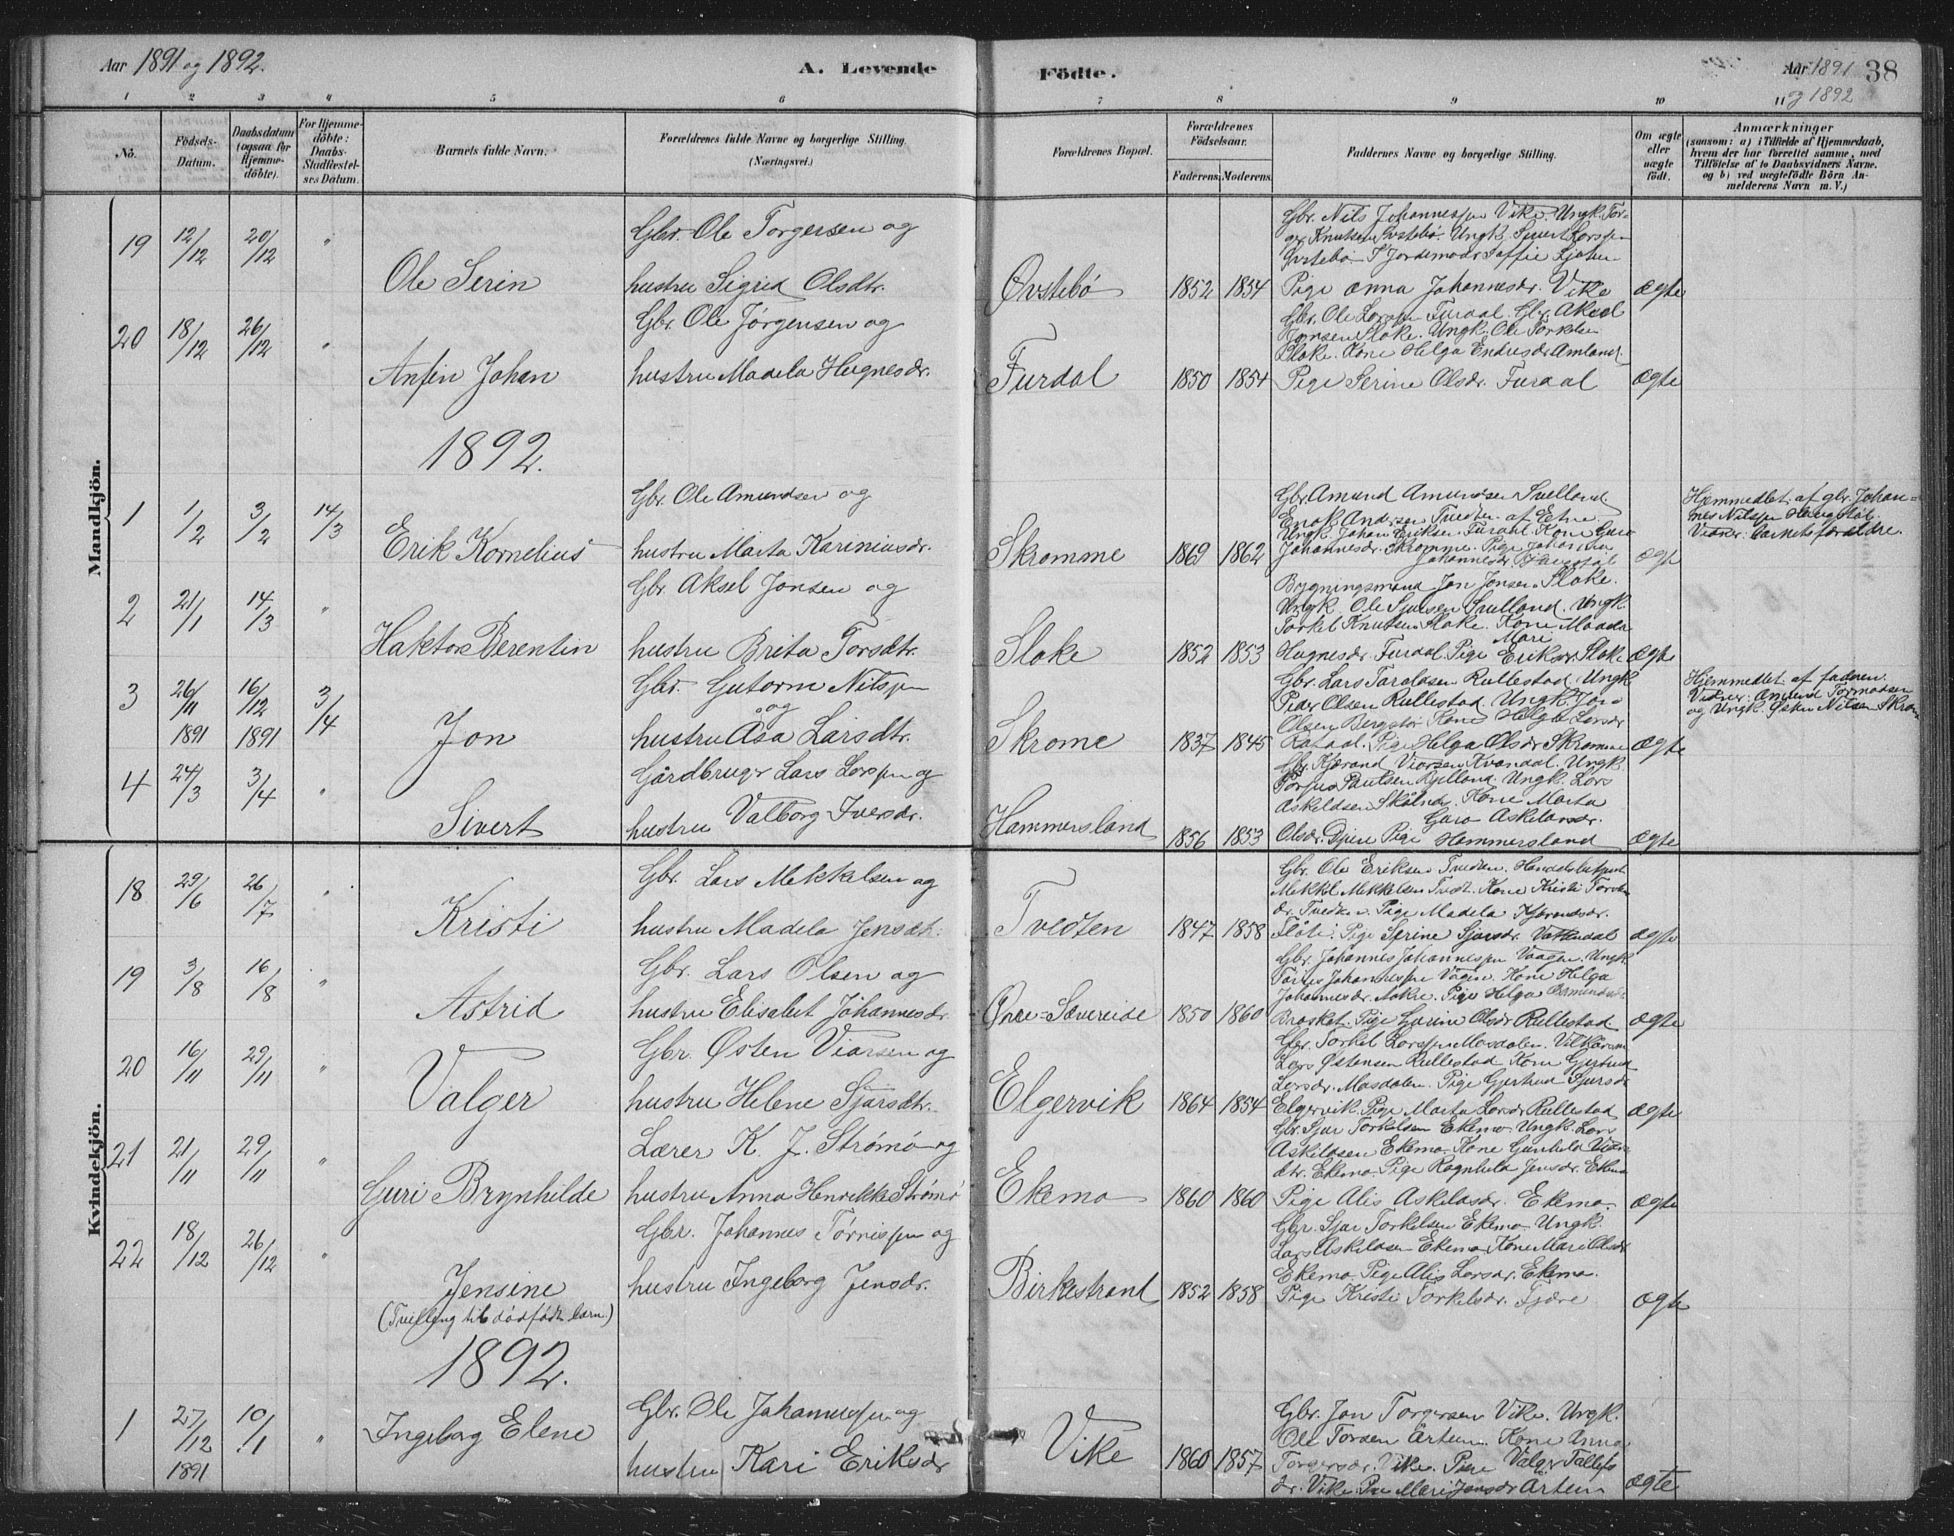 Aar 1891 og 1892.
A. Levende
Födte.
Aar 1891 38
og 1892
1 2 3 4 5 6 7 8 9 10 11
No.
Födsels-
Datum.
Daabsdatum
(ogsaa for
Hjemme-
döbte).
For Hjemme-
döbte:
Daabs-
Stadfæstel-
ses Datum.
Barnets fulde Navn.
Forældrenes fulde Navne og borgerlige Stilling.
(Næringsvei.)
Forældrenes Bopæl.
Forældrenes
Födselsaar.
Faderens. Moderens.
Faddernes Navne og borgerlige Stilling.
Om ægte
eller
uægte
født.
Anmærkninger
(saasom: a) i Tilfælde af Hjemmedaab,
hvem der har forrettet samme, med
Tilföielse af to Daabsvidners Navne,
og b) ved uægtefödte Börn An-
melderens Navn m. V.)
Mandkjön.
19 12/12 20/12 "
Ole Serin
Gbr. Ole Torgersen og
hustru Sigrid Olsdtr.
Øvstebö 1852 1854
Gbr. Nils Johannessen Vike. Ungk. Tor-
Pige Anna Johannesdr. Vike
ægte
20 18/12 26/12 "
Anfin Johan
Gbr. Ole Jörgensen og
hustru Madela Hognesdr.
Furdal 1850 1854
Gbr. Ole Larssen Furdal. Gbr. Aksel
Jonsen Sloke. Ungk. Ole Torkelsen
Sloke. Kone Helga Endresdr Amland.
Pige Serine Olsdr. Furdal
ægte
1892.
1 1/2 3/2 14/3
Erik Kornelius
Gbr. Ole Amundsen og
hustru Marta Kariniusdr.
Skromme 1869 1862
Gbr Amund Amundsen Svelland
Ungk. Johan Eriksen Furdal Kone Guro
Johannesdr. Skromme. Pige Johanna
ægte
Hjemmedbt. af gbr. Johan-
nes Nilssen Haugstöl.
Vidner: barnets forældre.
2 21/1 14/3 "
Haktor Berentin
Gbr. Aksel Jonsen og
hustru Brita Torsdtr.
Sloke 1852 1853
Bygningsmand Jon Jonsen Sloke.
Ungk. Ole Sjursen Svelland. Ungk.
Torkel Knutsen Sloke. Kone Madela
Mari
Hognesdr. Furdal. Pige Eriksdr. Sloke
ægte
3 26/11 1891 16/12 1891 3/4
Jon
Gbr. Gutorm Nilssen
og
hustru Åsa Larsdtr.
Skrome 1837 1845
Gbr. Lars Taraldsen Rullestad. Ungk
Peder Olsen Rullestad. Ungk. Jon
Olsen Bergstöl Kone Helga Larsdr
Rafdal. Pige Helga Olsdr Skromme
ægte
Hjemmedbt. af faderen.
Vidner: Amund Tormodsen
og Ungk. Østen Nilsen Skrome
4 24/3 3/4 "
Sivert
Gårdbruger Lars Larssen og
hustru Valborg Iversdr.
Hammersland 1856 1853
Gbr. Kjærand Vidrsen Kvandal. Ungk.
Askildsen Skålnes. Kone Marta
Guro Askildsdr.
Hammersland
ægte
Kvindekjön.
18 29/6 26/7 "
Kristi
Gbr. Lars Mekkelsen og
hustru Madela Jensdtr.
Tvedten 1847 1858
Gbr. Ole Eriksen Tvedten.
Mekkel Mekkelsen Tvedt. Kone Kristi
dr. Tvedten. Pige Madela Kjærandsdr.
Flåte. Pige Serine Sjursdr. Vattedal
ægte
19 3/8 16/8 "
Astrid
Gbr. Lars Olsen og
hustru Elisabet Johannesdr
Øvre-Sævereide 1850 1860
Gbr. Johannes Johannessen Vaagen. Ungk
Johannessen Vågen. Kone Helga
Johannesdr. Aakre. Pige Helga
Pige Gurine Olsdr Rullestad
ægte
20 16/11 29/11 "
Valger
Gbr. Østen Vidrsen og
hustru Helene Sjursdtr.
Elgervik 1864 1854
Gbr. Torkel Larssen Mosdalen.
Lars Østensen Rullestad Kone Gjertrud
Larsdr. Mosdalen. Pige Gjertrud Sjursdr
Elgervik. Pige Marta Larsdr Rullestad
ægte
21 21/11 29/11 "
Guri Brynhilde
Lærer K. J. Strömö og
hustru Anna Henrikke Strömö
Ekemo 1860 1860
Gbr. Sjur Torkelsen Ekemo. Ungk. Lars
Askildsen Ekemo. Kone Gunhild
dtr. Ekemo. Pige Ragnhild Jensdr. Ekemo
Pige Alis Askildsdr. Ekemo.
ægte
22 18/12 26/12 "
Jensine
(Tvilling til dödfödt barn)
Gbr. Johannes Törrissen og
hustru Ingeborg Jensdr.
Birkestrand 1852 1858
Gbr. Sjur Torkelsen Ekemo. Ungk.
Lars Askildsen Ekemo. Kone Mari Olsdr
Ekemo. Pige Alis Larsdr. Ekemo.
Pige Kristi Torkelsdr. Fjære
ægte
1892.
1 27/12 1891 10/1 "
Ingeborg Elene
Gbr. Ole Johannessen og
hustru Kari Eriksdr
Vike 1860 1857
Gbr. Jon Torgersen Vike. Ungk.
Ole Tordsen Årtun. Kone Anna
Torgersdr. Vike. Pige Valgr
dr. Vike. Pige Mari Jonsdr Årtun
ægte